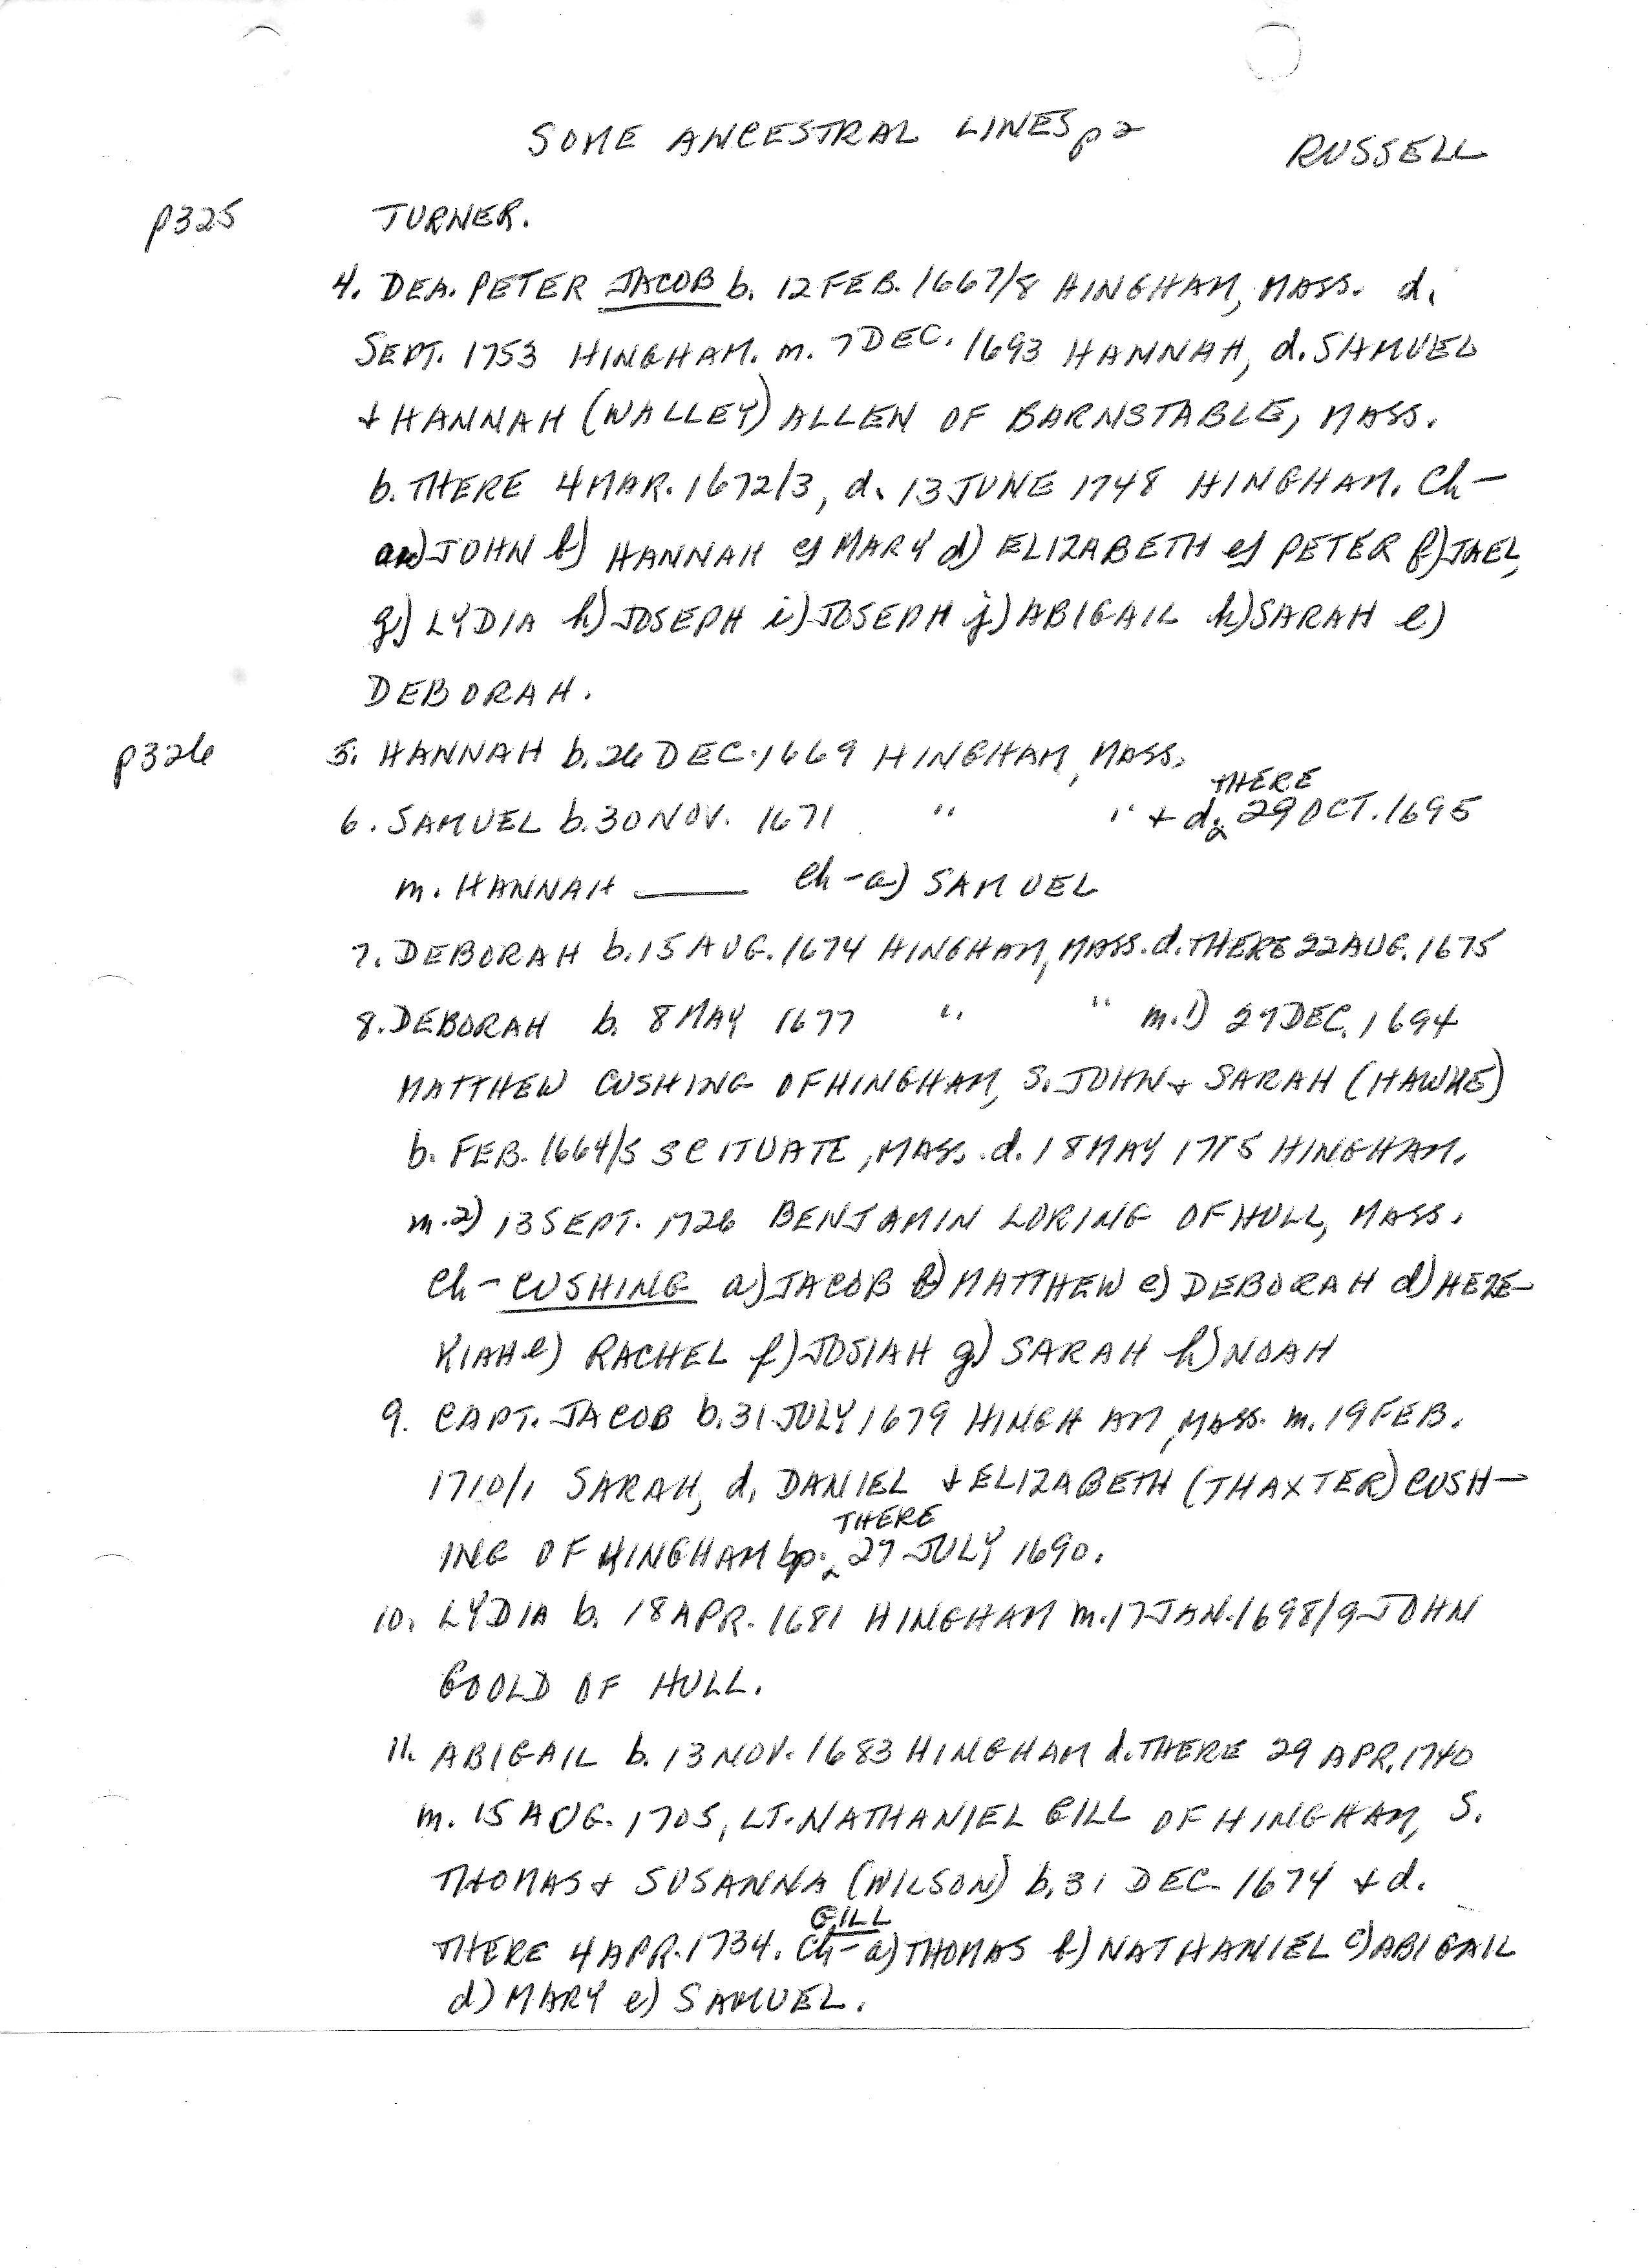 SOME ANCESTRAL LINES p2
RUSSELL
p325 TURNER.
4. DEA. PETER JACOB b. 12 FEB. 1667/8 HINGHAM, MASS. d.
SEPT. 1753 HINGHAM. m. 7 DEC. 1693 HANNAH, d. SAMUEL
+ HANNAH (WALLEY) ALLEN OF BARNSTABLE, MASS.
b. THERE 4 MAR. 1672/3, d. 13 JUNE 1748 HINGHAM. Ch-
a) JOHN b) HANNAH c) MARY d) ELIZABETH e) PETER f) JAEL,
g) LYDIA h) JOSEPH i) JOSEPH j) ABIGAIL k) SARAH l)
DEBORAH.
p326 5. HANNAH b. 26 DEC. 1669 HINGHAM, MASS.
6. SAMUEL b. 30 NOV. 1671 " " + d. THERE 29 OCT. 1695
m. HANNAH ____ Ch-a) SAMUEL
7. DEBORAH b. 15 AUG. 1674 HINGHAM, MASS. d. THERE 22 AUG. 1675
8. DEBORAH b. 8 MAY 1677 " " m. 1) 27 DEC. 1694
MATTHEW CUSHING OF HINGHAM, S. JOHN + SARAH (HAWKE)
b. FEB. 1664/5 SCITUATE, MASS. d. 18 MAY HINGHAM.
m. 2) 13 SEPT. 1726 BENJAMIN LORING OF HULL, MASS.
Ch- CUSHING a) JACOB b) MATTHEW c) DEBORAH d) HEZE-
KIAH e) RACHEL f) JOSIAH g) SARAH h) NOAH
9. CAPT. JACOB b. 31 JULY 1679 HINGHAM, MASS. m. 19 FEB.
1710/1 SARAH, d. DANIEL + ELIZABETH (THAXTER) CUSH-
ING OF HINGHAM bp. THERE 27 JULY 1690.
10. LYDIA b. 18 APR. 1681 HINGHAM m. 17 JAN. 1698/9 JOHN
GOOLD OF HULL.
11. ABIGAIL b. 13 NOV. 1683 HINGHAM d. THERE 29 APR. 1740
m. 15 AUG. 1705, LT. NATHANIEL GILL OF HINGHAM, S.
THOMAS + SUSANNA (WILSON) b. 31 DEC. 1674 + d.
THERE 4 APR. 1734. Ch- GILL a) THOMAS b) NATHANIEL c) ABIGAIL
d) MARY e) SAMUEL.